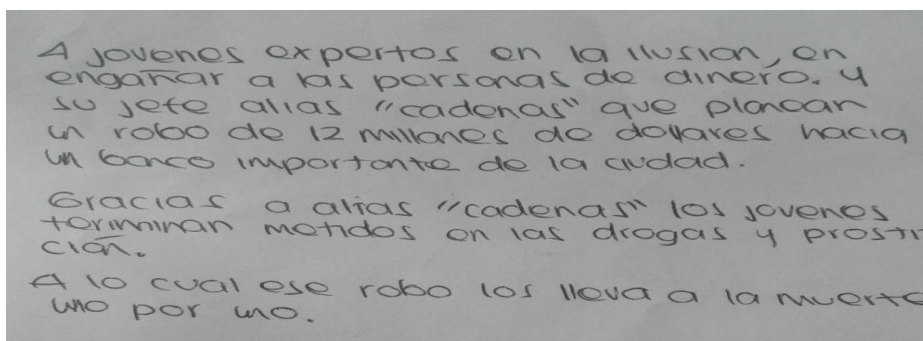 4 jovenes expertos en la ilusion, en
engañar a las personas de dinero. y
su jefe alias "cadenas" que planean
un robo de 12 millones de dollares hacia
un banco importante de la ciudad.
Gracias a alias "cadenas" los jovenes
terminan metidos en las drogas y prosti
ción.
A lo cual ese robo los lleva a la muerte
uno por uno.